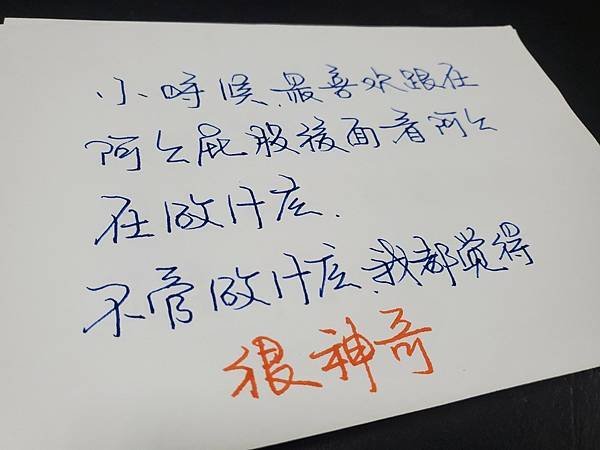 小時候、最喜欢跟在
阿公屁股後面看阿公
在做什庅.
不管做什庅、我都觉得
很神奇